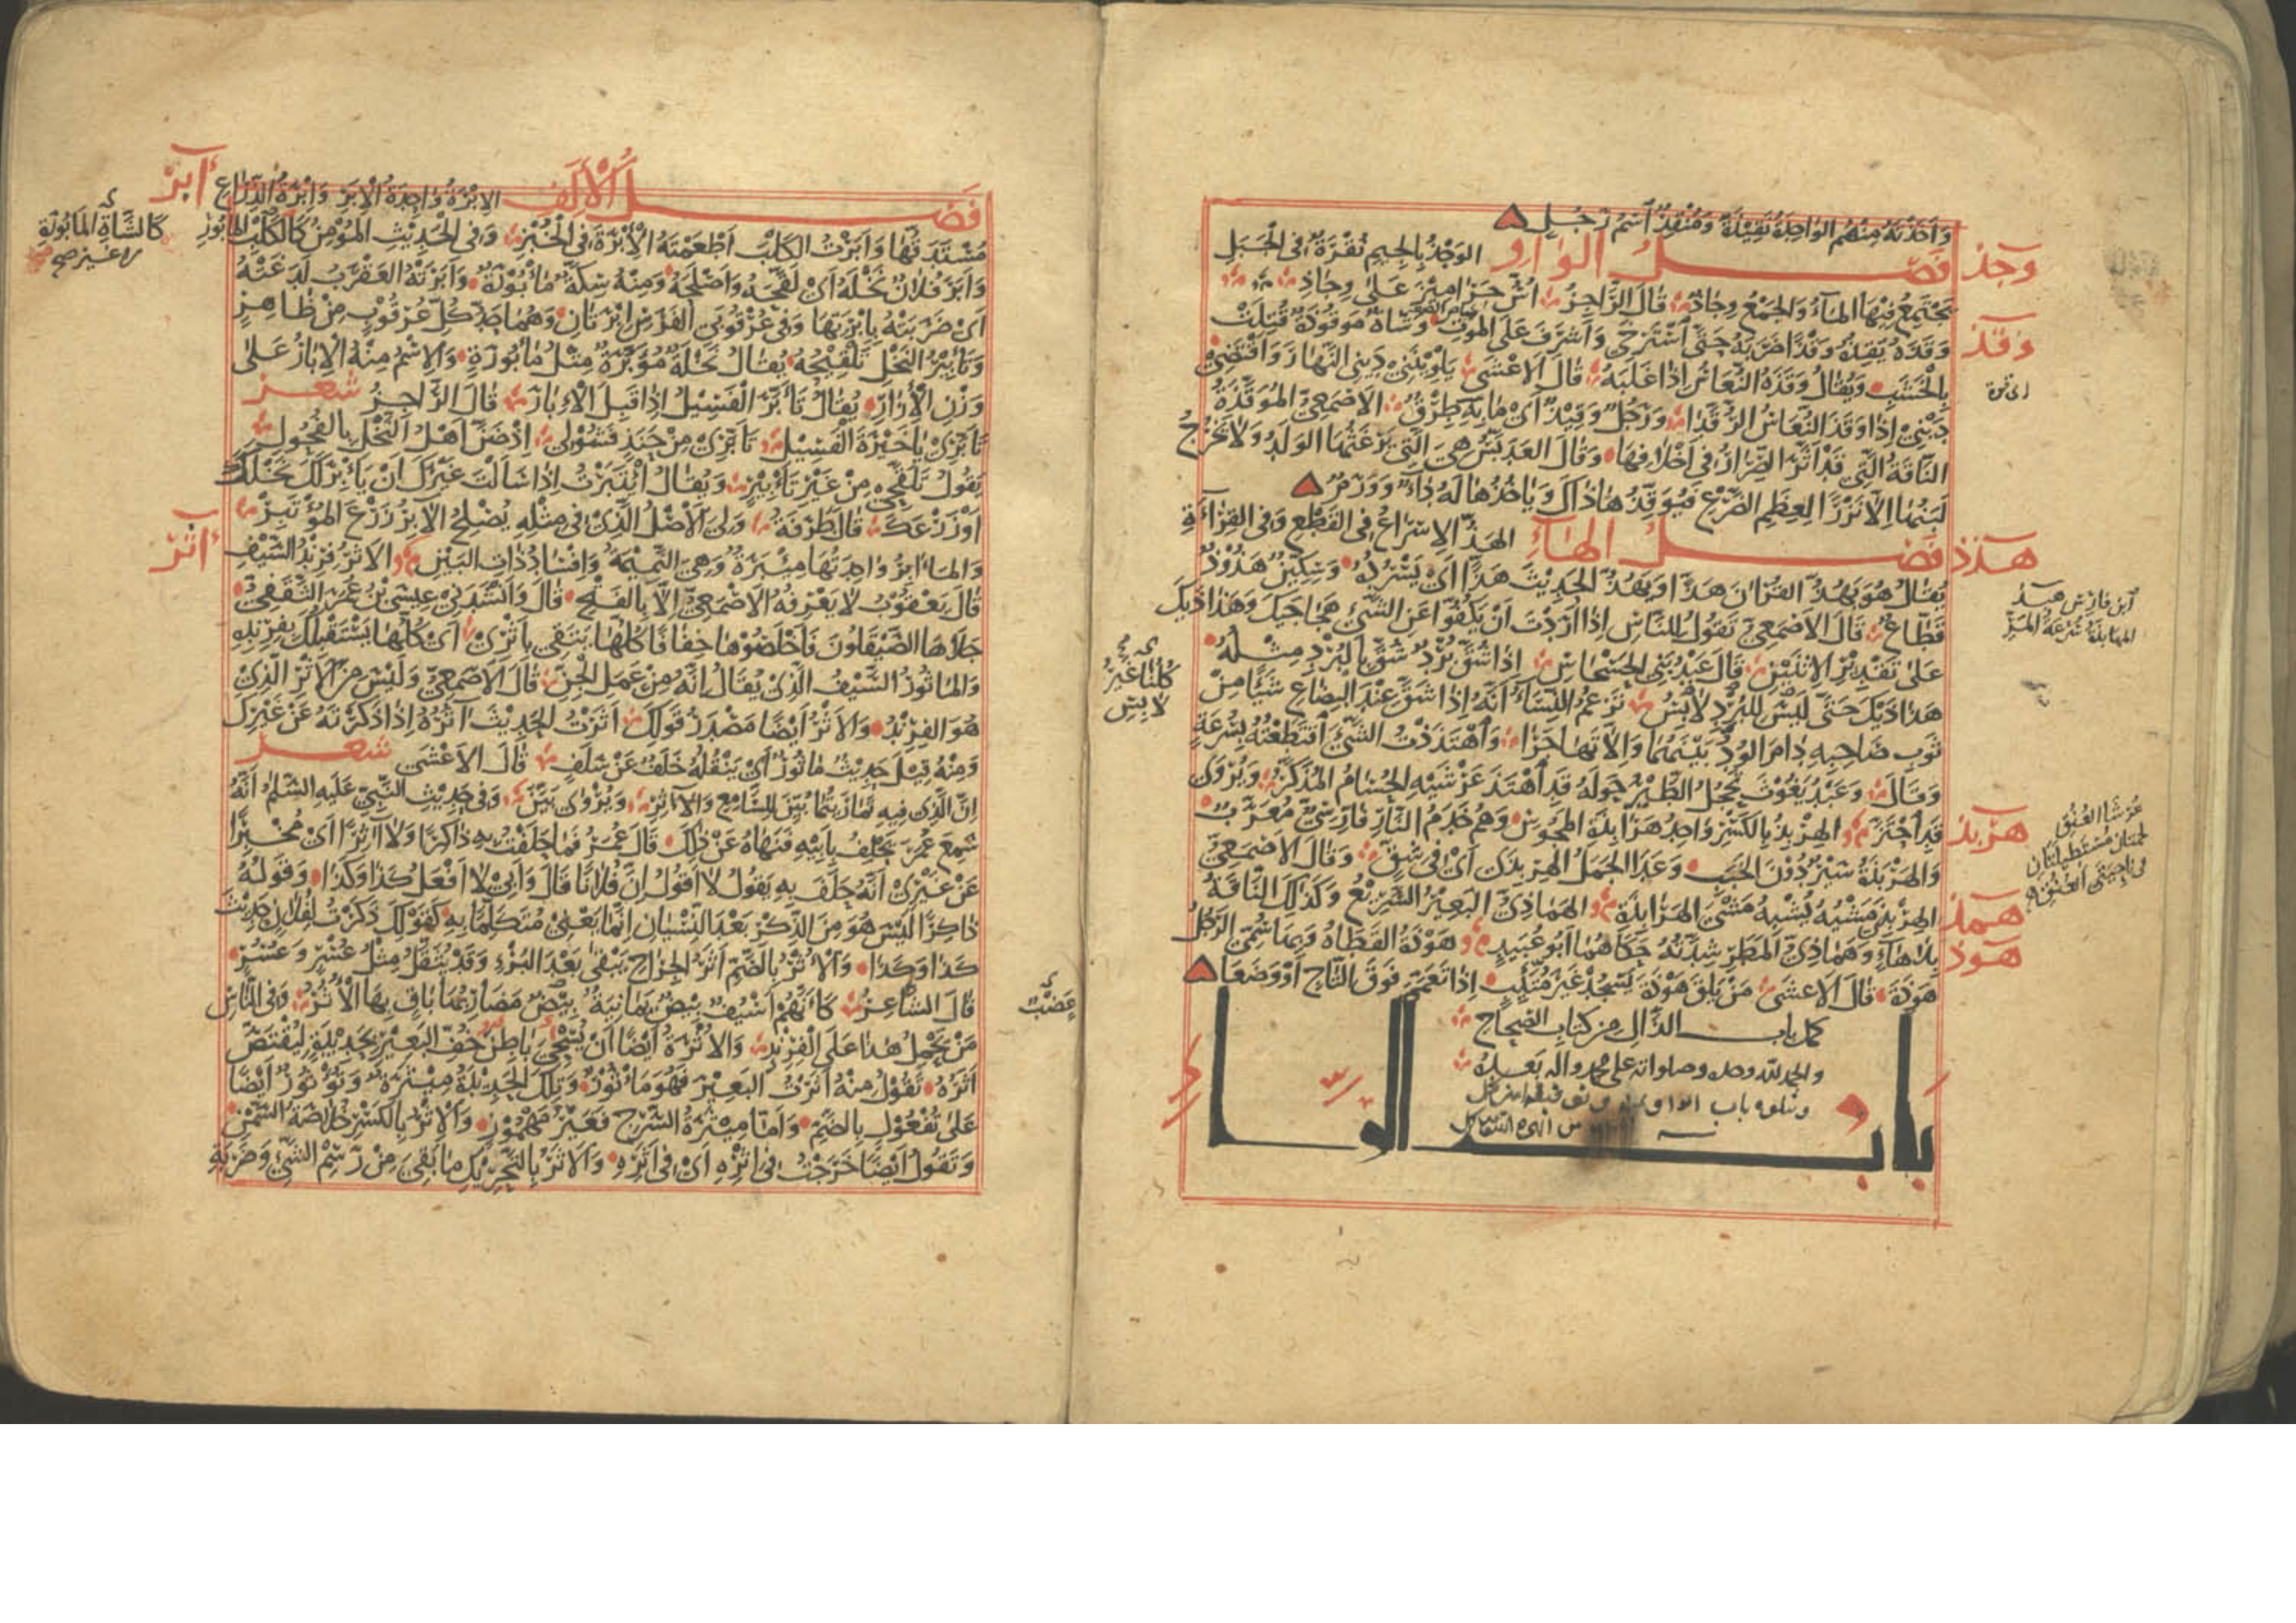 وَاَخَذْتُهُ مِنْهُمْ الوَاحِدَةُ نَقِيذَةٌ وَمُنْقِذٌ اَسْمُ رَجُلٍ
وجذ
فصل الواو الوَجْذُ بِالجِيمِ نُقْرَةٌ فِى الْجَبَلِ
يَجْتَمِعُ فِيْهَا المَآءُ وَالجَمْعُ وِجَاذٌ قَالَ الرَّاجِزُ
وقذ
وَقَذَهُ يَقِذُهُ وَقْذًا ضَرَبَهُ حَتَّى اَسْتَرْخَى وَاَشْرَفَ عَلَى المَوْتِ وَشَاةٌ مَوْقُوذَةٌ قُتِلَتْ
بِالْخَشَبِ وَيُقَالُ وَقَذَهُ النُّعَاسُ اِذَا غَلَبَهُ قَالَ الاَعْشَى يَلْوِيْنَنِىْ دَيْنِى النَّهَارَ وَاَقْتَضِىْ
دَيْنِىْ اِذَا وَقَذَ النُّعَاسُ الرُّقَّدَا وَرَجُلٌ وَقِيْذٌ اَىْ مَا بِهِ طِرْقٌ الاَصْمَعِىُّ المُوَقَّذَةُ
النَّاقَةُ الَّتِى قَدْ اَثَّرَ الصِّرَارُ فِى اَخْلَافِهَا وَقَالَ العَدَبَّسُ هِىَ الَّتِى يَرْغَثُهَا الوَلَدُ وَلَا يَخْرُجُ
لَبَنُهَا اِلَّا نَزْرًا لِعِظَمِ الضَّرْعِ فَيُوقِذُهَا ذَاكَ وَيَاخُذُهَا لَهُ دَاءٌ وَوَرَمٌ
هذذ
فصل الهاء الهَذُّ الاِسْرَاعُ فِى القَطْعِ وَفِى القِرَاءَةِ
يُقَالُ هُوَ يَهُذُّ القُرْاٰنَ هَذًّا وَيَهُذُّ الحَدِيْثَ هَذًّا اَىْ يَسْرُدُهُ وَسِكِّيْنٌ هَذُوْذٌ
قَطَّاعٌ قَالَ الاَصْمَعِىُّ تَقُولُ لِلنَّاسِ اِذَا اَرَدْتَ اَنْ يَكُفُّوا عَنِ الشَّىْءِ هَجَاجَيْكَ وَهَذَاذَيْكَ
عَلَى تَقْدِيْرِ الاِثْنَيْنِ قَالَ عَبْدُ بَنِى الحَسْحَاسِ اِذَا شُقَّ بُرْدٌ شُقَّ بِالبُرْدِ مِثْلُهُ
هَذَاذَيْكَ حَتَّى لَيْسَ لِلبُرْدِ لَابِسُ تَزْعُمُ النِّسَاءُ اَنَّهُ اِذَا شَقَّ عِنْدَ البِضَاعِ شَيْئًا مِنْ
كُلُّنَا غَيْرُ
لَابِسِ
ثَوْبِ صَاحِبِهِ دَامَ الوُدُّ بَيْنَهُمَا وَاِلَّا تَهَاجَرَا وَاهْتَذَذْتُ الشَّىْءَ اقْتَطَعْتُهُ بِسُرْعَةٍ
وَقَالَ وَعَبْدُ يَغُوْثَ تَحْجُلُ الطَّيْرُ حَوْلَهُ قَدِ اهْتَذَّ عَرْشَيْهِ الحُسَامُ المُذَكَّرُ وَيُرْوَى
هربذ
قَدِ احْتَزَّ الهِرْبِذُ بِالكَسْرِ وَاحِدُ هَرَابِذَةِ المَجُوْسِ وَهُمْ خَدَمُ النَّارِ فَارِسِىٌّ مُعَرَّبٌ
عُرْشَا العُنُقِ
لحمتان مستطيلتان
فى ناحيتى العنق
وَالهَرْبَذَةُ سَيْرٌ دُوْنَ الخَبَبِ وَعَدَا الجَمَلُ الهِرْبِذَى اَىْ فِى شِقٍّ وَقَالَ الاَصْمَعِىُّ
همذ
الهِرْبِذَى مَشْيُهُ يُشْبِهُ مَشْىَ الهَرَابِذَةِ الهَمَاذِىُّ البَعِيْرُ السَّرِيْعُ وَكَذٰلِكَ النَّاقَةُ
هوذ
بِلَا هَاءٍ وَهَمَاذِىُّ المَطَرِ شِدَّتُهُ حَكَاهُمَا اَبُو عُبَيْدٍ هَوْذَةُ القَطَاةُ وَرُبَّمَا سُمِّىَ الرَّجُلُ
هَوْذَةَ قَالَ الاَعْشَى مَنْ يَلْقَ هَوْذَةَ يَسْجُدْ غَيْرَ مُتَّئِبٍ اِذَا تَعَمَّمَ فَوْقَ التَّاجِ اَوْ وَضَعَا
كمل باب الذال من كتاب الصحاح
والحمد لله وحده وصلواته على محمد واله بعده
باب الرا
أبر
فصل الألف الاِبْرَةُ وَاحِدَةُ الاِبَرِ وَاِبْرَةُ الذِّرَاعِ
مُسْتَدَقُّهَا وَاَبَرْتُ الكَلْبَ اَطْعَمْتَهُ الاِبْرَةَ فِى الخُبْزِ وَفِى الحَدِيْثِ المُؤْمِنُ كَالكَلْبِ المَابُوْرِ
كَالشَّاةِ المَابُوْرَةِ
وَاَبَرَ فُلَانٌ نَخْلَهُ اَىْ لَقَّحَهُ وَاَصْلَحَهُ وَمِنْهُ سِكَّةٌ مَأْبُوْرَةٌ وَاَبَرَتْهُ العَقْرَبُ لَدَغَتْهُ
اَىْ ضَرَبَتْهُ بِاِبْرَتِهَا وَفِى عُرْقُوبَىِ الفَرَسِ اِبْرَتَانِ وَهُمَا حَدُّ كُلِّ عُرْقُوْبٍ مِنْ ظَاهِرٍ
وَتَأْبِيْرُ النَّخْلِ تَلْقِيْحُهُ يُقَالُ نَخْلَةٌ مُؤَبَّرَةٌ مِثْلُ مَأْبُوْرَةٍ وَالاِسْمُ مِنْهُ الاِبَارُ عَلَى
وَزْنِ الاِزَارِ يُقَالُ تَأَبَّرَ الفَسِيْلُ اِذَا قَبِلَ الاِبَارَ قَالَ الرَّاجِزُ شعر
تَأَبَّرِىْ يَا خَيْرَةَ الفَسِيْلِ تَأَبَّرِىْ مِنْ حَنَذٍ فَشُوْلِىْ اِذْ ضَنَّ اَهْلُ النَّخْلِ بِالفُحُوْلِ
يَقُولُ تَلَقَّحِى مِنْ غَيْرِ تَأْبِيْرٍ وَيُقَالُ ائْتَبَرْتُ اِذَا سَاَلْتَ غَيْرَكَ اَنْ يَأْبِرَ لَكَ نَخْلَكَ
اَوْ زَرْعَكَ قَالَ طَرَفَةُ وَلِىَ الاَصْلُ الَّذِىْ فِى مِثْلِهِ يُصْلِحُ الآبِرُ زَرْعَ المُؤْتَبِرْ
أثر
وَالمَآبِرُ وَاحِدَتُهَا مِئْبَرَةٌ وَهِىَ النَّمِيْمَةُ وَاِفْسَادُ ذَاتِ البَيْنِ الاَثْرُ فِرِنْدُ السَّيْفِ
قَالَ يَعْقُوْبُ لَا يَعْرِفُهُ الاَصْمَعِىُّ اِلَّا بِالفَتْحِ قَالَ وَاَنْشَدَنِى عِيْسَى بْنُ عُمَرَ الثَّقَفِىُّ
جَلَاهَا الصَّيْقَلُوْنَ فَاَخْلَصُوْهَا خِفَافًا كُلُّهَا يَتَقِى بِاَثْرِ اَىْ كُلُّهَا يَسْتَقْبِلُكَ بِفِرِنْدِهِ
وَالمَأْثُوْرُ السَّيْفُ الَّذِىْ يُقَالُ اِنَّهُ مِنْ عَمَلِ الجِنِّ قَالَ الاَصْمَعِىُّ وَلَيْسَ مِنَ الاَثْرِ الَّذِىْ
هُوَ الفِرِنْدُ وَالاَثْرُ اَيْضًا مَصْدَرُ قَوْلِكَ اَثَرْتُ الحَدِيْثَ آثُرُهُ اِذَا ذَكَرْتَهُ عَنْ غَيْرِكَ
وَمِنْهُ قِيْلَ حَدِيْثٌ مَأْثُوْرٌ اَىْ يَنْقُلُهُ خَلَفٌ عَنْ سَلَفٍ قَالَ الاَعْشَى شعر
اِنَّ الَّذِى فِيْهِ تَمَارَيْتُمَا بُيِّنَ لِلسَّامِعِ وَالآثِرِ وَيُرْوَى بَيَّنَ وَفِى حَدِيْثِ النَّبِىِّ عَلَيْهِ السَّلَمُ اَنَّهُ
سَمِعَ عُمَرَ يَحْلِفُ بِاَبِيْهِ فَنَهَاهُ عَنْ ذٰلِكَ قَالَ عُمَرُ فَمَا حَلَفْتُ بِهِ ذَاكِرًا وَلَا آثِرًا اَىْ مُخْبِرًا
عَنْ غَيْرِىْ اَنَّهُ حَلَفَ بِهِ يَقُولُ لَا اَقُولُ اِنَّ فُلَانًا قَالَ وَاَبِىْ لَا اَفْعَلُ كَذَا وَكَذَا وَقَوْلُهُ
ذَاكِرًا لَيْسَ هُوَ مِنَ الذِّكْرِ بَعْدَ النِّسْيَانِ اِنَّمَا يَعْنِىْ مُتَكَلِّمًا بِهِ كَقَوْلِكَ ذَكَرْتُ لِفُلَانٍ حَدِيْثَ
كَذَا وَكَذَا وَالاُثْرُ بِالضَّمِّ اَثَرُ الجِرَاحِ يَبْقَى بَعْدَ البُرْءِ وَقَدْ يُثَقَّلُ مِثْلُ عُسْرٍ وَعُسُرٍ
عَضْبٌ
قَالَ الشَّاعِرُ كَاَنَّهُمْ اَسْيُفٌ بِيْضٌ يَمَانِيَةٌ بِيْضٌ مَضَارِبُهَا بَاقٍ بِهَا الاُثُرُ وَفِى النَّاسِ
مَنْ يَحْمِلُ هٰذَا عَلَى الفِرِنْدِ وَالاُثْرَةُ اَيْضًا اَنْ يُسْحَى بَاطِنُ خُفِّ البَعِيْرِ بِحَدِيْدَةٍ لِيُقْتَصَّ
اَثَرُهُ تَقُوْلُ مِنْهُ اَثَرْتُ البَعِيْرَ فَهُوَ مَأْثُوْرٌ وَتِلْكَ الحَدِيْدَةُ مِيْثَرَةٌ وَتُؤْثُوْرٌ اَيْضًا
عَلَى تُفْعُوْلٍ بِالضَّمِّ وَاَمَّا مِيْثَرَةُ السَّرْجِ فَغَيْرُ مَهْمُوْزٍ وَالاِثْرُ بِالكَسْرِ خُلَاصَةُ السَّمْنِ
وَتَقُولُ اَيْضًا خَرَجْتُ فِى اِثْرِهِ اَىْ فِى اَثَرِهِ وَالاَثَرُ بِالتَّحْرِيْكِ مَا بَقِىَ مِنْ رَسْمِ الشَّىْءِ وَضَرْبَةِ